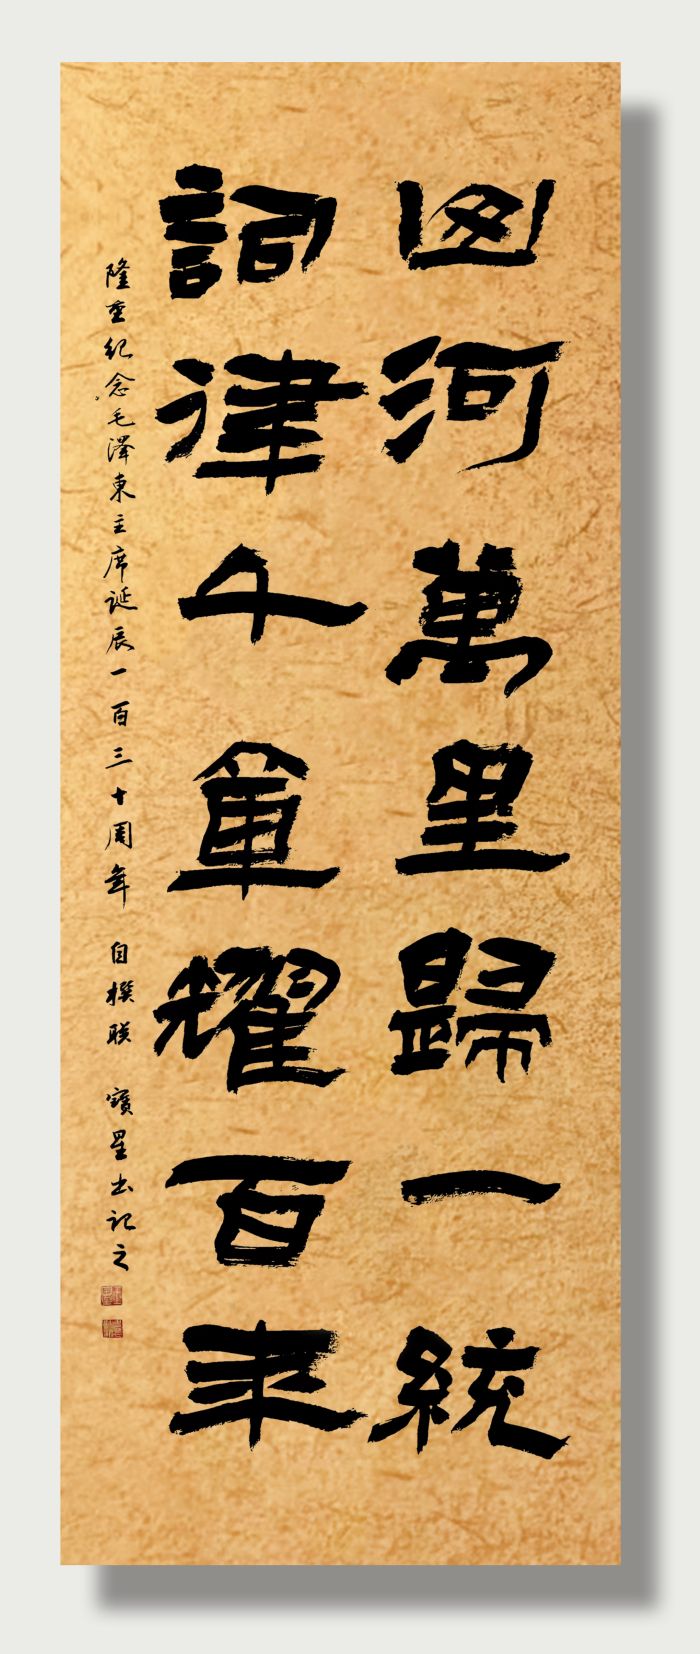 山河萬里歸一統
詞律千軍耀百年
隆重紀念毛澤東主席誕辰一百三十周年 自撰联 寶星书記之